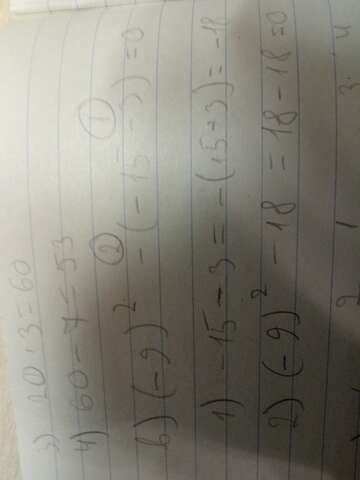 3) 20 · 3 = 60
4) 60 - 7 = 53
② ①
в) (-9)² - (-15 - 3) = 0
1) -15 - 3 = -(15+3) = -18
2) (-9)² - 18 = 18 - 18 = 0